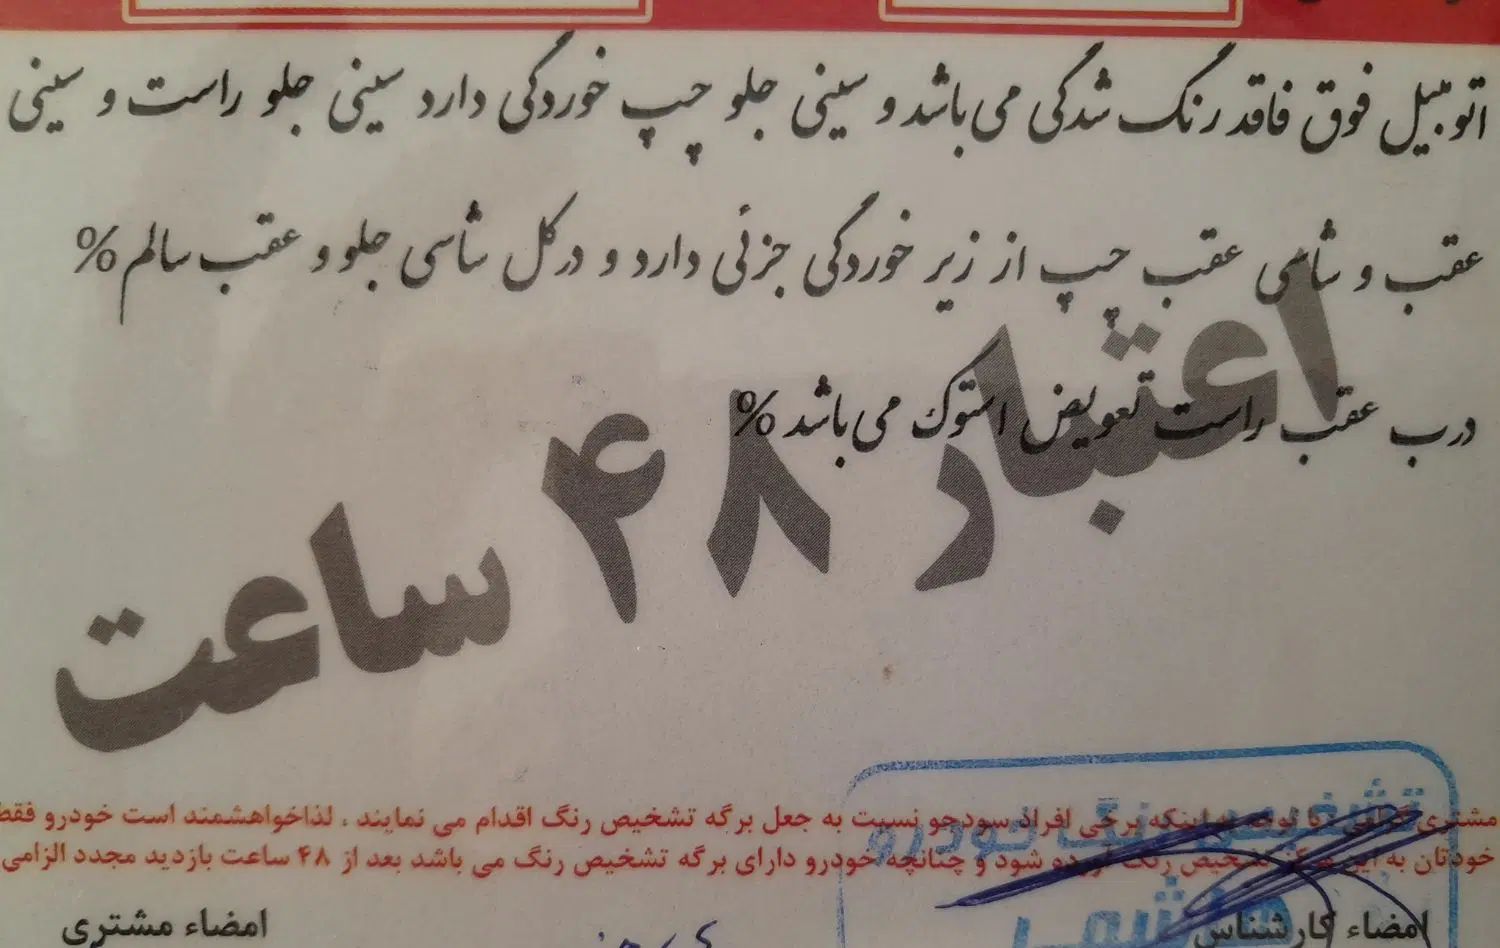 اتومبیل فوق فاقد رنگ شدگی می باشد و سینی جلو چپ خوردگی دارد سینی جلو راست و سینی
عقب و شاسی عقب چپ از زیر خوردگی جزئی دارد و درکل شاسی جلو و عقب سالم %
درب عقب راست تعویض استوک می باشد %
اعتبار ۴۸ ساعت
تشخیص رنگ خودرو
مشتری گرامی با توجه به اینکه برخی افراد سودجو نسبت به جعل برگه تشخیص رنگ اقدام می نمایند ، لذاخواهشمند است خودرو فقط
خودتان به این مرکز تشخیص رنگ آورده شود و چنانچه خودرو دارای برگه تشخیص رنگ می باشد بعد از ۴۸ ساعت بازدید مجدد الزامی
امضاء کارشناس
امضاء مشتری